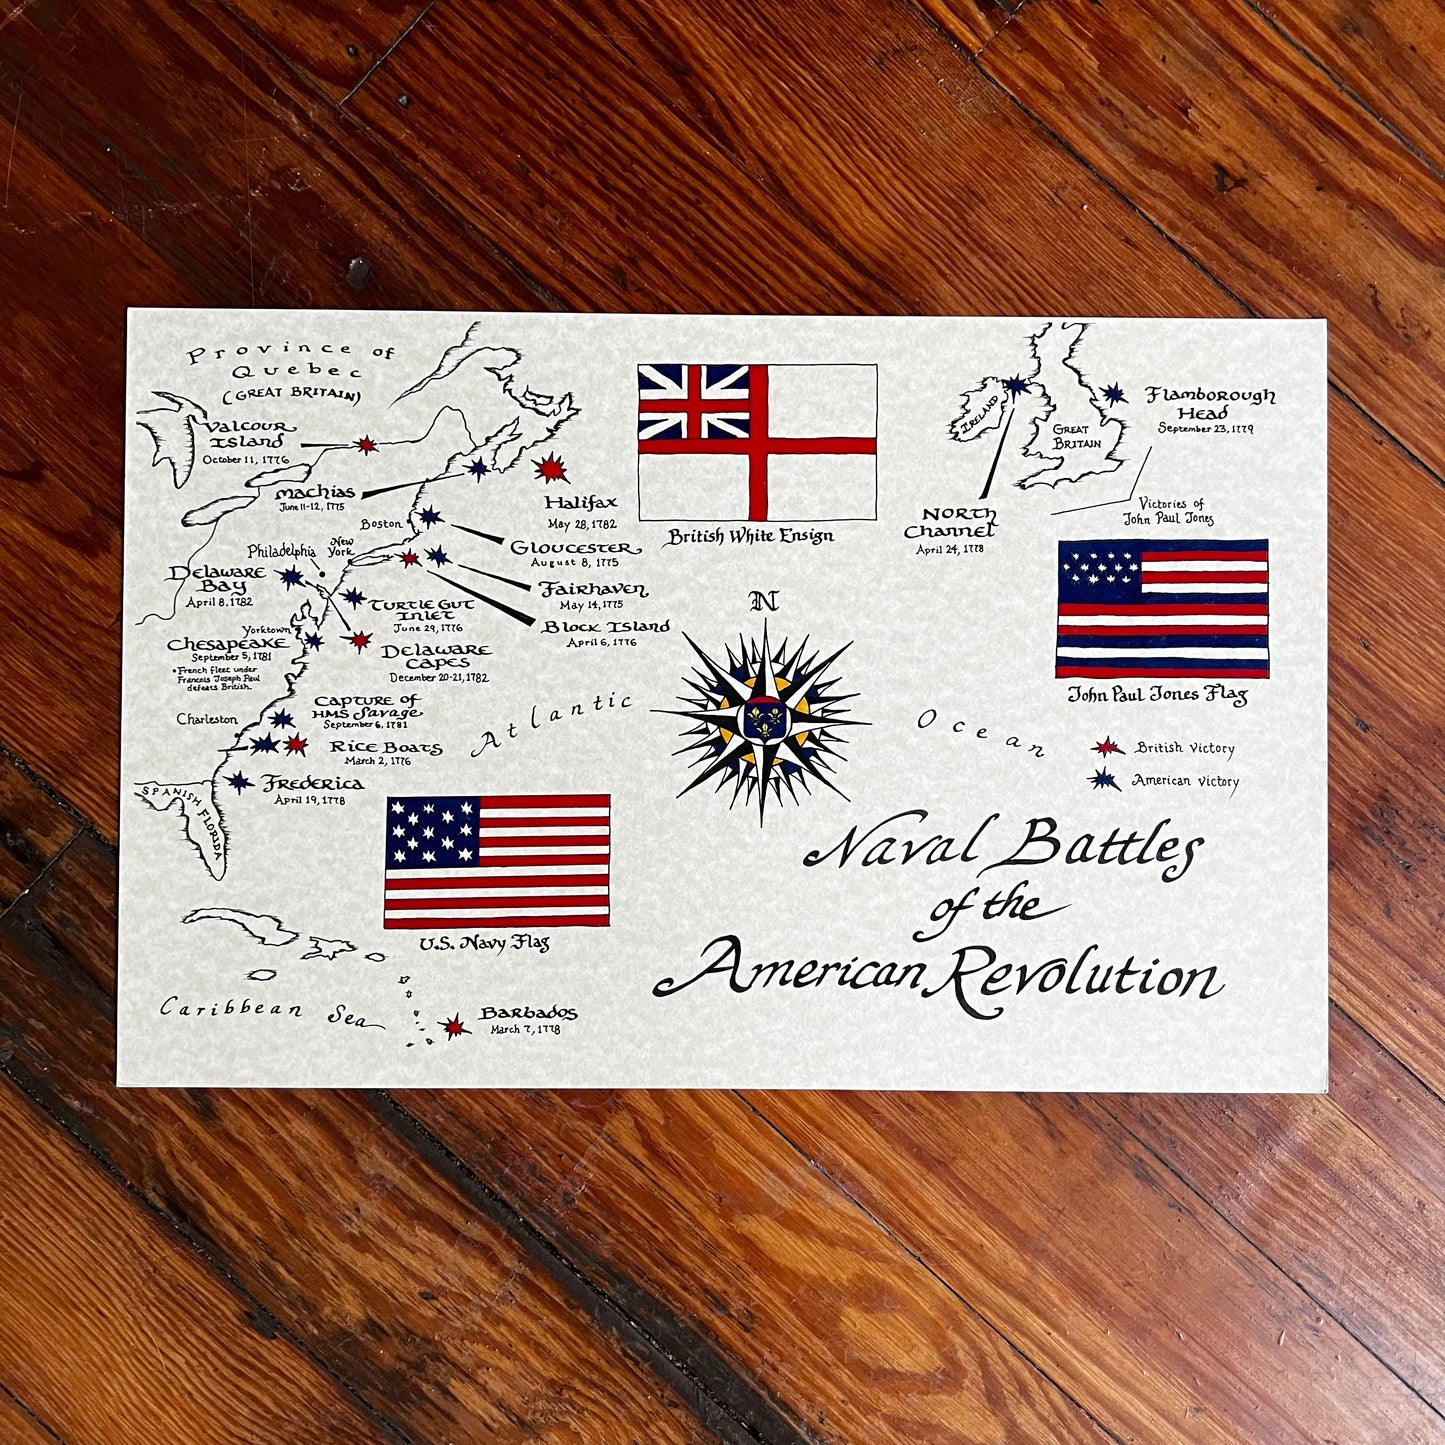 Province of
Quebec
(GREAT BRITAIN)
Valcour
Island
October 11, 1776
Machias
June 11-12, 1775
Halifax
May 28, 1782
Boston
Gloucester
August 8, 1775
Philadelphia
New
York
Fairhaven
May 14, 1775
Delaware
Bay
April 8, 1782
Turtle Gut
Inlet
June 29, 1776
Block Island
April 6, 1776
Yorktown
Chesapeake
September 5, 1781
• French fleet under
Francois Joseph Paul
defeats British.
Delaware
Capes
December 20-21, 1782
Capture of
HMS Savage
September 6, 1781
Charleston
Rice Boats
March 2, 1776
Frederica
April 19, 1778
SPANISH FLORIDA
British White Ensign
IRELAND
GREAT
BRITAIN
Flamborough
Head
September 23, 1779
North
Channel
April 24, 1778
Victories of
John Paul Jones
John Paul Jones Flag
N
Atlantic Ocean
British victory
American victory
U.S. Navy Flag
Naval Battles
of the
American Revolution
Caribbean Sea
Barbados
March 7, 1778